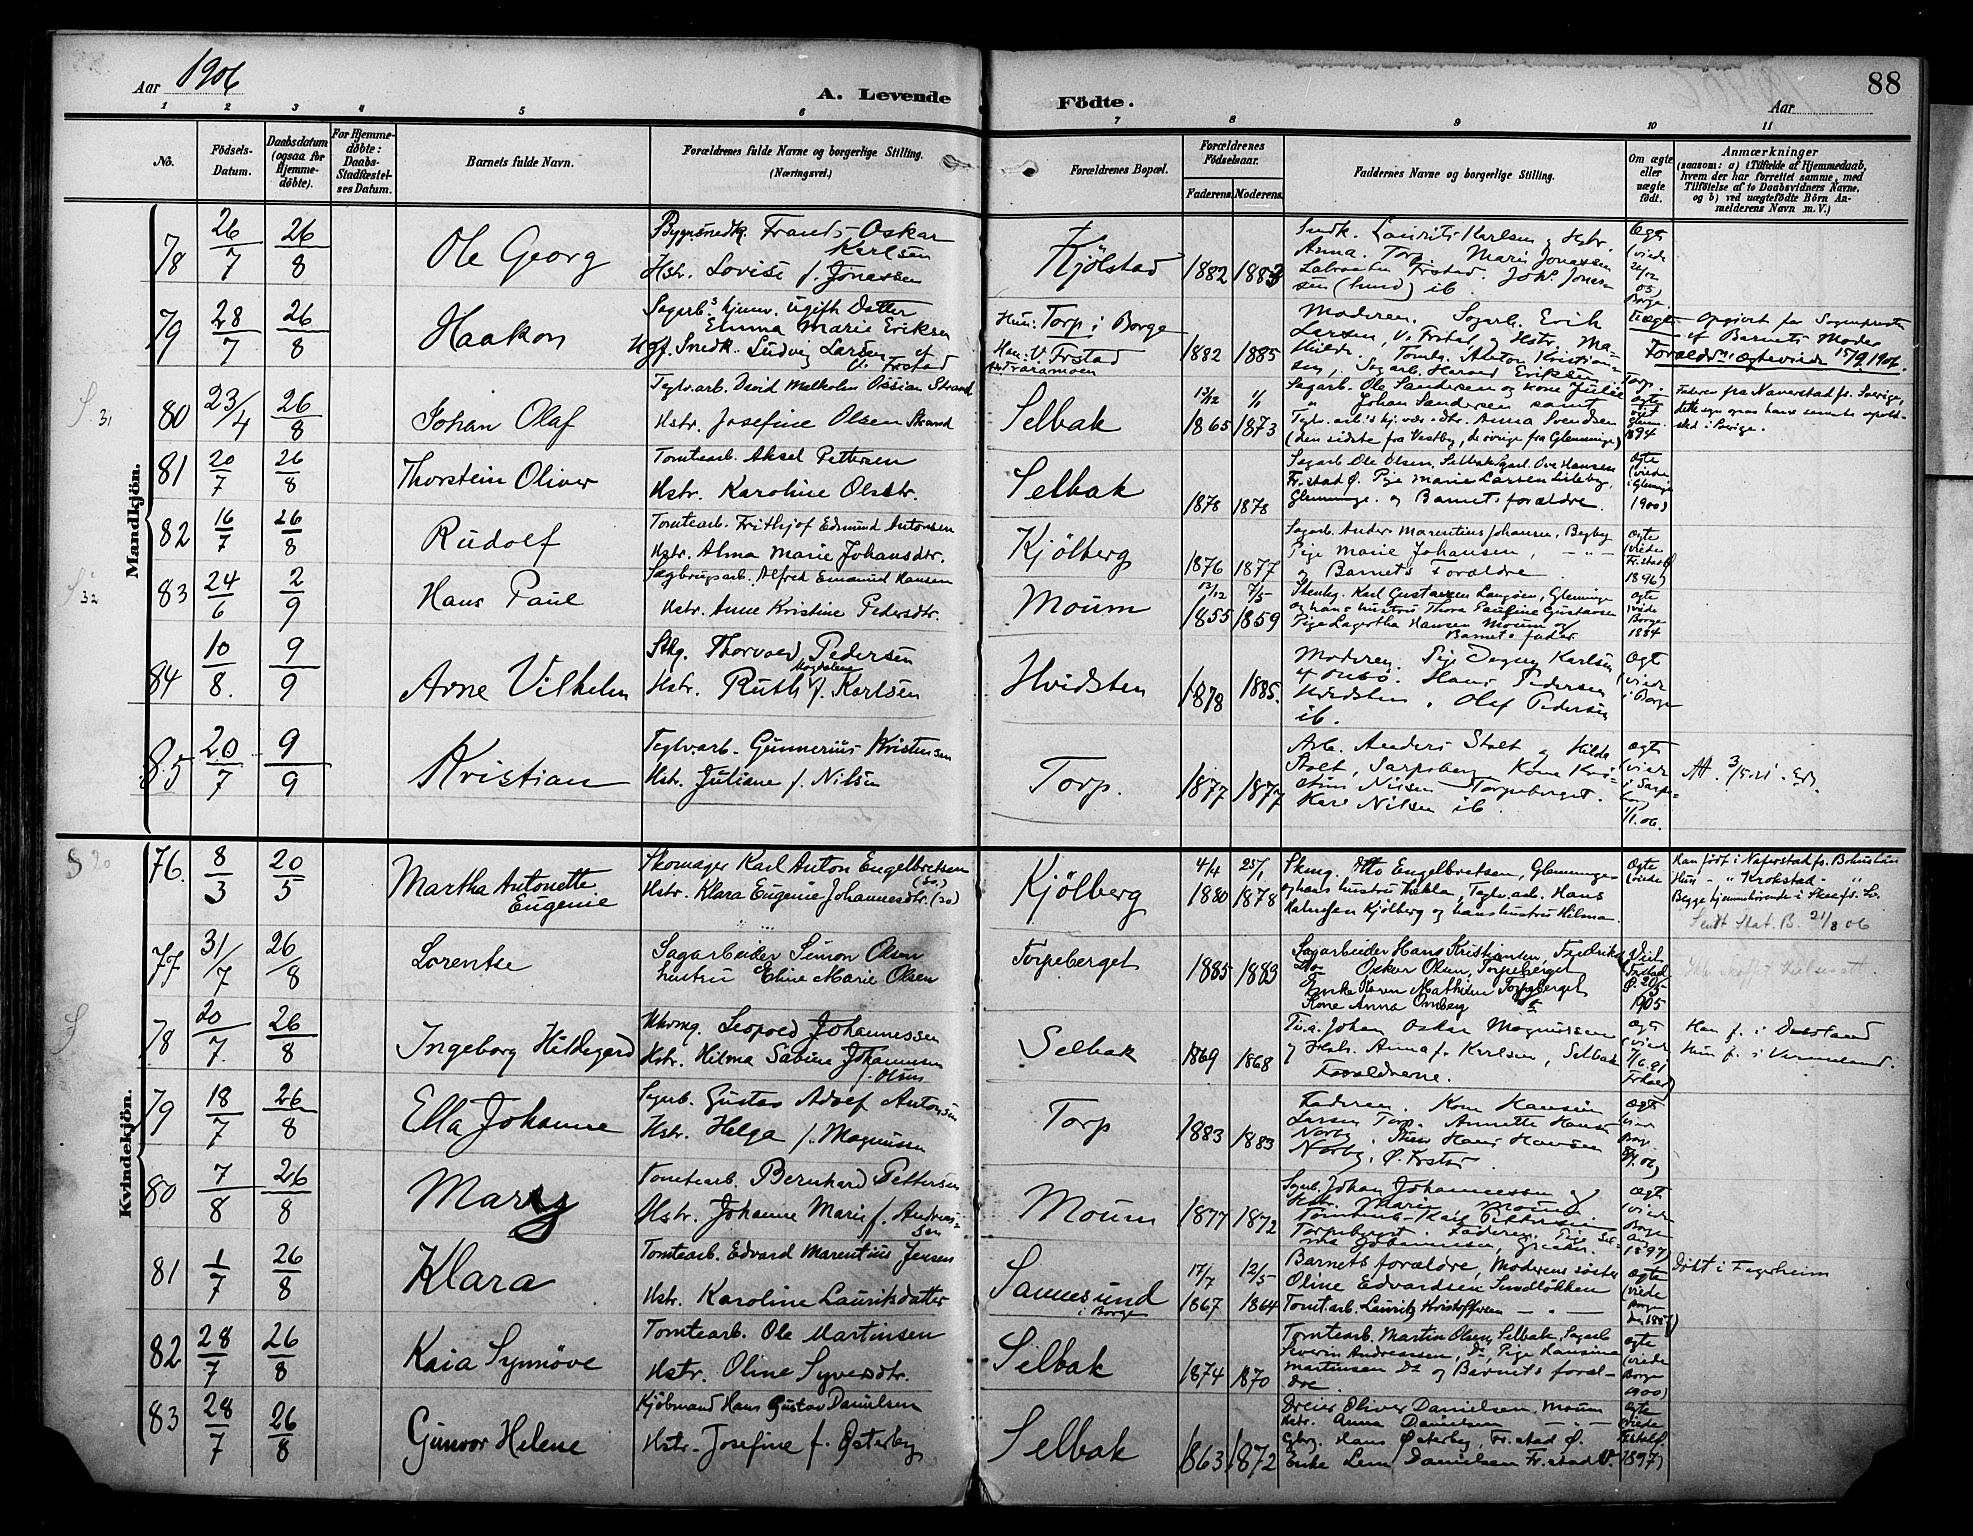 Aar 1906
A. Levende
Födte.
88
Aar
1 2 3 4 5 6 7 8 9 10 11
No.
Födsels-Datum.
Daabsdatum (ogsaa for Hjemmedöbte).
For Hjemmedöbte: Daabs-Stadfæstelses Datum.
Barnets fulde Navn.
Forældrenes fulde Navne og borgerlige Stilling. (Næringsvei.)
Forældrenes Bopæl.
Forældrenes Födselsaar.
Faderens. Moderens.
Faddernes Navne og borgerlige Stilling.
Om ægte eller uægte födt.
Anmærkninger
(saasom: a) i Tilfælde af Hjemmedaab, hvem der har forrettet samme, med Tilföielse af to Daabsvidners Navne, og b) ved uægtefödte Börn Anmelderens Navn m. V.)
Mandkjön.
78 26/7 26/8 Ole Georg
Frands Oskar Karlsen
Hstr. Lovise f. Jonassen
Kjölstad 1882 1883
Snedk. Laurits Karlsen og Hstr.
Anna. Torp. Marie Jonassen
79 28/7 26/8 Haakon
Sagarb.s hjemv. ugift Datter
Emma Marie Eriksen
Ugf. Snedk. Ludvig Larsen af V. Frstad
Hun: Torp i Borge
Han: V. Frstad
1882 1885
Moderen. Sagarb. Erik
Larsen, V. Frstad og Hstr. Mathilde. Tomtb. Anton Kristiansen, Sagarb. Harald Eriksen Torp.
Uægte
Opgivet for Sognepresten
af Barnets Moder
Forældr. ægteviede 15/9 1906.
S 31
80 23/4 26/8 Johan Olaf
Teglv.arb. David Malkolm Ossian Strand
Hstr. Josefine Olsen Strand
Selbak 13/12 1865 1/1 1873
Sagarb. Ole Sandersen og kone Julie
" Johan Sandersen samt
Teglv.arb.s hj.vær. dtr. Anna Svendsen
(den sidste fra Vestby, de övrige fra Glemminge)
Ægte 1894
Faderen fra Naverstad fs. Sverige,
81 20/7 26/8 Thorstein Oliver
Tomtearb. Aksel Pettersen
Hstr. Karoline Olsdtr.
Selbak 1878 1878
Sagarb. Ole Olsen, Selbak, Sgarb. Ove Hansen
Fr.stad Ø. Pige Marie Larsen Lisleby,
Glemminge. og Barnets forældre.
Ægte (viede i Glemminge 1900)
82 16/7 26/8 Rudolf
Tomtearb. Frithjof Edmund Antonsen
Hstr. Alma Marie Johansdtr.
Kjölberg 1876 1877
Sagarb. Anders Marentius Johansen, Begby
Pige Marie Johansen, — " —
og Barnets Forældre
Ægte (viede Fr.stad 1896)
S 32
83 24/6 2/9 Hans Paul
Sagbrugsarb. Alfred Emanuel Hansen
Hstr. Anne Kristine Pedersdtr.
Moum 12/12 1855 7/5 1859
Stenhg. Karl Gustavsen Langöen, Glemminge
og hans hustru Thora Pauline Gustavsen
Pige Lagertha Hansen Moum og
Barnets fader
Ægte (viede Borge 1884
84 10/8. 9/9 Arne Vilhelm
Sthg. Thorvald Pedersen
Hstr. Ruth Magdalene f. Karlsen
Hvidsten 1878 1885.
Moderen. Pige Dagny Karlsen
Hans Pedersen
Hvidsten. Olaf Pedersen
ib.
Ægte (viede i Borge
85 20/7 9/9 Kristian
Teglvarb. Gunnerius Kristensen
Hstr. Juliane f. Nilsen
Torp. 1877 1877
Arb. Anders Stolt og Hilda
Stolt, Sarpsborg. Kone
Nilsen Torpeberget.
Karl Nilsen ib.
Ægte (viede i Sarpsborg 1/1.06.
Kvindekjön.
S 20
76. 8/3 20/5 Martha Antonette Eugenie
Skomager Karl Anton Engelbretsen (sv.)
Hstr. Klara Eugenie Johannesdtr. (sv)
Kjölberg 4/4 1880 25/1 1878
Skmg. Otto Engelbretsen, Glemminge
og hans hustru Thekla, Teglv.arb. Hans
Kjölberg og hans hustru Hilma.
Ægte (viede
Han född i Naverstad fs. Bohuslen
Hun - " Krokstad - "
Begge hjemmehörende i Skee fs. Sv.
Sendt Stat. B. 21/8 06
77 31/7 26/8 Lorentse
Sagarbeider Simon Olsen
hustru Eline Marie Olsen
Torpeberget 1885 1883
Sagarbeider Hans Kristiansen, Fredrikstad
Oskar Olsen, Torpeberget
Enke Karen Mathisen Torpeberget
Kone Anna Omberg
Viet Frstad Ø. 20/5 1905
S
78 20/7. 26/8 Ingeborg Hildegard
Uhrmg. Leopold Johannessen
Hstr. Hilma Sabine Johannesen f. Olsen
Selbak 1869 1868
Johan Oskar Magnussen
og Hstr. Anna f. Karlsen, Selbak
Forældrerne.
Ægte (viede 7/6.91
Han f. i Dalsland
Hun f. i Vermeland.
79 18/7 26/8 Ella Johanne
Sagarb. Gustav Adolf Antonsen
Hstr. Helga f. Magnusen
Torp 1883 1883
Faderen. Kone Hansine
Larsen Torp. Annette Hansen
Norby, Hans Hansen
Norby, Ø. Frstad.
80 7/8 26/8 Mary
Tomtearb. Bernhard Pettersen
Hstr. Johanne Marie f. Andreassen
Moum 1877 1872
Sagarb. Johan Johannessen og
Hstr. Marie Moum
Tomtearb. Karl Pettersen
Torpeberget. Faderen. Pige
Johannesen, Greaker.
Ægte (viede Borge 1897)
81 1/7 26/8 Klara
Tomtearb. Edvard Marentius Jensen
Hstr. Karoline Lauritsdatter
Sannesund i Borge
17/7 1867 12/5 1864
Barnets forældre, Moderens söster
Oline Edvardsen Sundlökken
Tomt.arb. Lauritz Kristoffersen — " —
Ægte (viede Borge
Födt i Fagerheim
82 28/7 26/8 Kaia Synnöve
Tomtearb. Ole Martinsen
Hstr. Oline Syversdtr.
Selbak 1874 1870
Tomtearb. Martin Olsen, Selbak, Sagarb.
Severin Andreassen, Do, Pige Hansine
Martinsen Do og Barnets forældre.
Ægte (viede Borge 1900)
83 28/7 26/8 Gunvor Helene
Kjöbmand Hans Gustav Danielsen
Hstr. Josefine f. Østerby
Selbak 1863 1872
Dreier Oliver Danielsen, Moum
Hstr. Anna Danielsen — " —
Gbrg. Hans Østerby, Fr.stad Ø.
Enke Lena Danielsen Fr.stad V.
Ægte (viede Fr.stad Ø. 1897)